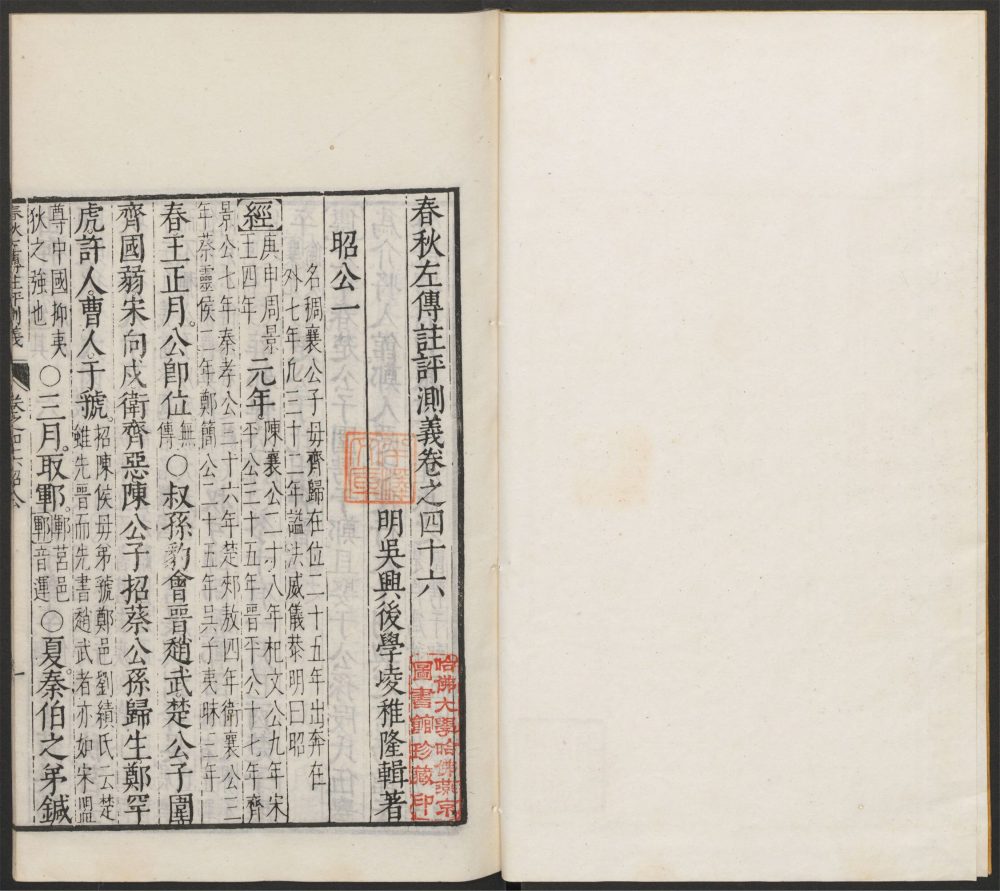 春秋左傳註評測義卷之四十六
明吳興後學凌稚隆輯著
哈佛大學哈佛燕京
圖書館珍藏印
昭公一
名稠襄公子毋齊歸在位二十五年出奔在
外七年凡三十二年謚法威儀恭明曰昭
【經】
庚申周景
王四年
元年
陳襄公二十八年杞文公九年宋
平公三十五年晉平公十七年齊
景公七年秦孝公三十六年楚郟敖四年衛襄公三
年蔡靈侯二年鄭簡公二十五年吳子夷昧三年
春王正月公卽位
無
傳
○叔孫豹會晉趙武楚公子圍
齊國弱宋向戌衛齊惡陳公子招蔡公孫歸生鄭罕
虎許人曹人于虢
招陳侯毋弟虢鄭邑劉績氏云楚
雖先晉而先書趙武者亦如宋盟
尊中國抑夷
狄之強也
○三月取鄆
鄆莒邑
鄆音運
○夏秦伯之弟鍼
春秋左傳註評測義
卷之四十六昭公
一